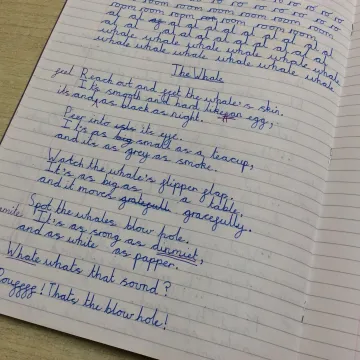 ro ro ro ro ro ro ro ro
room room room room room room
room room room room room room
al al al al al al al al al
al al al al al al al al al
whale whale whale whale whale whale
whale whale whale whale whale whale
The Whale
feel Reach out and feet the whale's skin.
It's smooth and hard like an egg,
its and as black as night.
Peer into its eye.
It's as big small as a teacup,
and its as grey as smoke.
Watch the whale's flipper flap.
It's as big as a table,
and it moves gracefully.
Spot the whales blow hole.
It's as srong as dinmiet,
and as white as papper.
Whale whats that sound?
! Thats the blow hole!